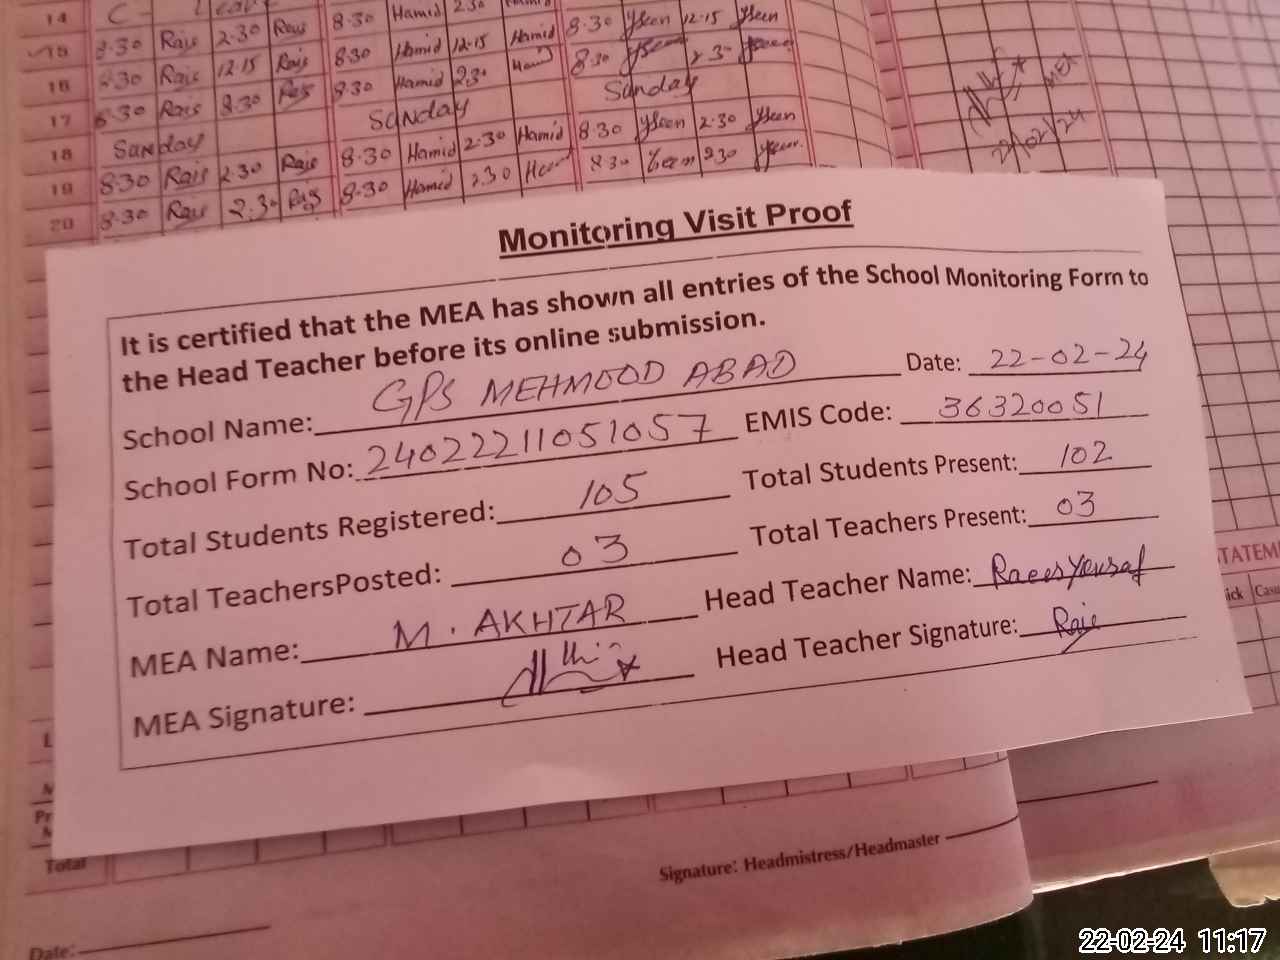 14 C- Leave 8·30 Hamid 2·30 Hamid 8·30 Yseen 12·15 Yseen
15 8·30 Rais 2·30 Rais 8·30 Hamid 12·15 Hamid 8·30 Yseen 2·30 Yseen
16 8·30 Rais 12·15 Rais 8·30 Hamid 2·30 Hamid Sunday
17 8·30 Rais 8·30 Rais Sunday 8·30 Yseen 2·30 Yseen
18 Sunday 8·30 Hamid 2·30 Hamid 8·30 2·30
19 8·30 Rais 2·30 Rais 8·30 Hamid 2·30
20 8·30 Rais 2·30 Rais
MEA
22/02/24
Monitoring Visit Proof
It is certified that the MEA has shown all entries of the School Monitoring Form to
the Head Teacher before its online submission.
School Name: GPS MEHMOOD ABAD Date: 22-02-24
School Form No: 24022211051057 EMIS Code: 36320051
Total Students Registered: 105 Total Students Present: 102
Total TeachersPosted: 03 Total Teachers Present: 03
MEA Name: M. AKHTAR Head Teacher Name: Raees Yousaf
MEA Signature: Head Teacher Signature: Rais
STATEM
ick Casu
Total
Signature: Headmistress/Headmaster
Date:
22-02-24 11:17